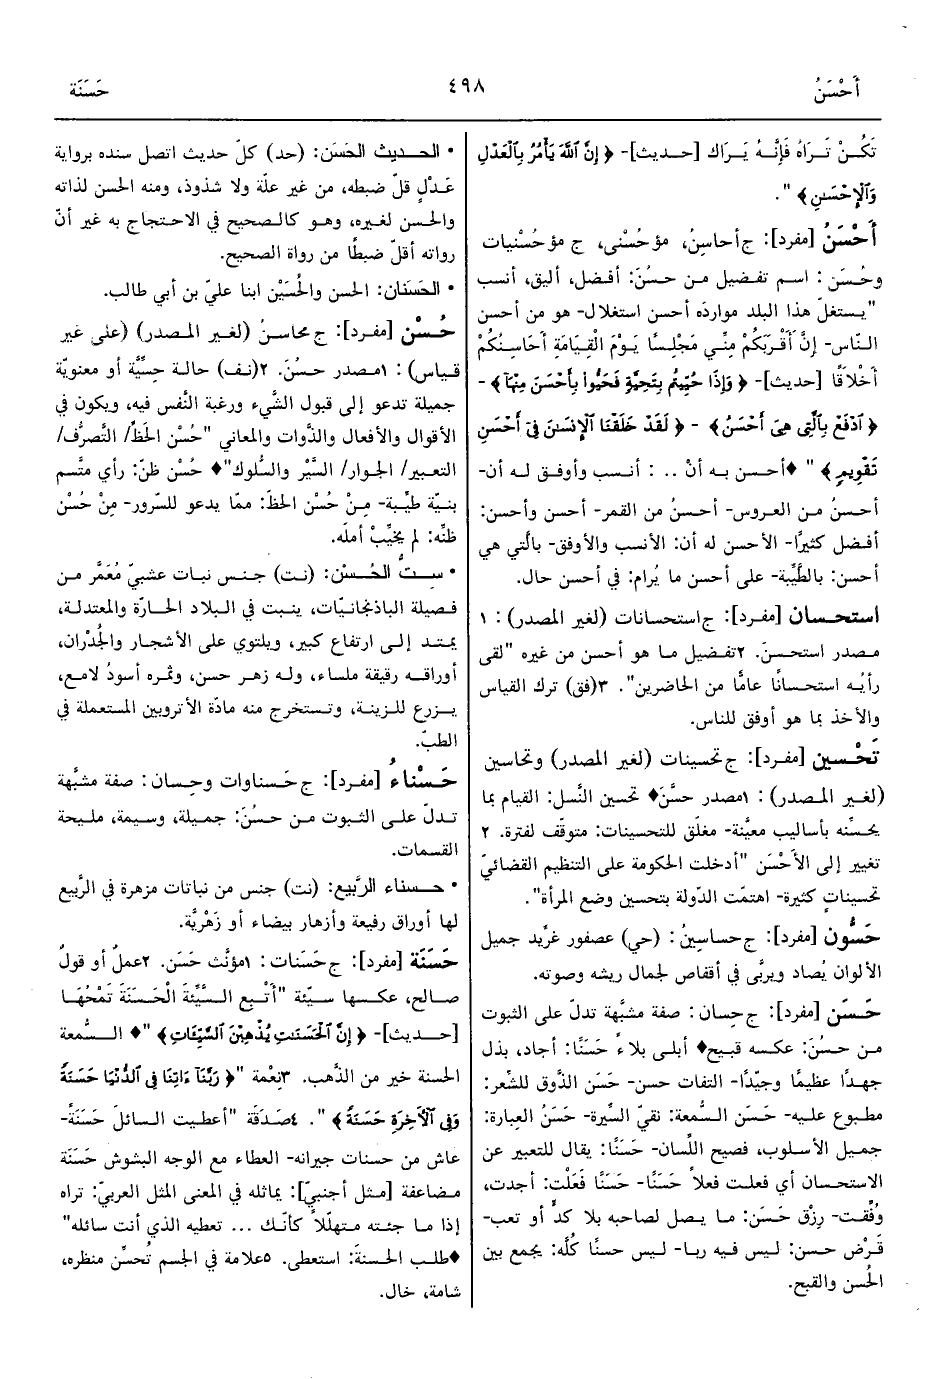 أَحْسَنُ
٤٩٨
حَسَنَة
تَكُنْ تَرَاهُ فَإِنَّهُ يَرَاكَ [حديث]- ﴿ إِنَّ ٱللَّهَ يَأْمُرُ بِٱلْعَدْلِ
وَٱلْإِحْسَٰنِ ﴾ ".
أَحْسَنُ [مفرد]: ج أحاسنُ، مؤ حُسْنى، ج مؤ حُسْنيات
وحُسَن : اسم تفضيل من حسُنَ: أفضل، أليق، أنسب
"يستغلّ هذا البلد موارده أحسن استغلال- هو من أحسن
النّاس- إِنَّ أَقْرَبَكُمْ مِنِّي مَجْلِسًا يَوْمَ الْقِيَامَةِ أَحَاسِنُكُمْ
أَخْلاَقًا [حديث]- ﴿ وَإِذَا حُيِّيتُم بِتَحِيَّةٍ فَحَيُّوا۟ بِأَحْسَنَ مِنْهَآ ﴾ -
﴿ ٱدْفَعْ بِٱلَّتِى هِىَ أَحْسَنُ ﴾ - ﴿ لَقَدْ خَلَقْنَا ٱلْإِنسَٰنَ فِىٓ أَحْسَنِ
تَقْوِيمٍ ﴾ " ♦أحسن به أنْ .. : أنسب وأوفق له أن-
أحسنُ من العروس- أحسنُ من القمر- أحسن وأحسن:
أفضل كثيرًا- الأحسن له أن: الأنسب والأوفق- بالَّتي هي
أحسن: بالطَّيِّبة- على أحسن ما يُرام: في أحسن حال.
استحسان [مفرد]: ج استحسانات (لغير المصدر) : ١
مصدر استحسنَ. ٢تفضيل ما هو أحسن من غيره "لقى
رأيُه استحسانًا عامًّا من الحاضرين". ٣(فق) ترك القياس
والأخذ بما هو أوفق للناس.
تَحْسين [مفرد]: ج تحسينات (لغير المصدر) وتحاسين
(لغير المصدر) : ١مصدر حسَّنَ♦ تحسين النَّسل: القيام بما
يحسِّنه بأساليب معيَّنة- مغلَق للتحسينات: متوقّف لفترة. ٢
تغيير إلى الأَحْسَن "أدخلت الحكومة على التنظيم القضائيّ
تحسيناتٍ كثيرة- اهتمّت الدّولة بتحسين وضع المرأة".
حَسُّون [مفرد]: ج حساسينُ : (حي) عصفور غرِّيد جميل
الألوان يُصاد ويربَّى في أقفاص لجمال ريشه وصوته.
حَسَن [مفرد]: ج حِسان : صفة مشبَّهة تدلّ على الثبوت
من حسُنَ: عكسه قبيح♦ أبلى بلاءً حَسَنًا: أجاد، بذل
جهدًا عظيمًا وجيِّدًا- التفات حسن- حَسَن الذَّوق للشّعر:
مطبوع عليه- حَسَن السُّمعة: نقيّ السِّيرة- حَسَنُ العِبارة:
جميل الأسلوب، فصيح اللِّسان- حَسَنًا: يقال للتعبير عن
الاستحسان أي فعلت فعلاً حَسَنًا- حَسَنًا فَعَلْت: أجدت،
وُفِّقت- رِزْق حَسَن: ما يصل لصاحبه بلا كدٍّ أو تعب-
قَرْض حسن: ليس فيه ربا- ليس حسنًا كلُّه: يجمع بين
الحُسن والقبح.
• الحديث الحَسَن: (حد) كلّ حديث اتصل سنده برواية
عَدْلٍ قلّ ضبطه، من غير علّة ولا شذوذ، ومنه الحسن لذاته
والحسن لغيره، وهو كالصحيح في الاحتجاج به غير أنّ
رواته أقلّ ضبطًا من رواة الصحيح.
• الحَسَنان: الحسن والحُسَيْن ابنا عليّ بن أبي طالب.
حُسْن [مفرد]: ج محاسنُ (لغير المصدر) (على غير
قياس) : ١مصدر حسُنَ. ٢(نف) حالة حِسِّيَّة أو معنويّة
جميلة تدعو إلى قبول الشَّيء ورغبة النَّفس فيه، ويكون في
الأقوال والأفعال والذَّوات والمعاني "حُسْن الحَظّ/ التَّصرُّف/
التعبير/ الجوار/ السَّيْر والسُّلوك"♦ حُسْن ظنّ: رأي متَّسم
بنيّة طيِّبة- مِنْ حُسْن الحظّ: ممّا يدعو للسّرور- مِنْ حُسْن
ظنِّه: لم يخيِّبْ أملَه.
• سِتُّ الحُسْن: (نت) جنس نبات عشبيّ مُعَمَّر من
فصيلة الباذنجانيّات، ينبت في البلاد الحارّة والمعتدلة،
يمتد إلى ارتفاع كبير، ويلتوي على الأشجار والجُدْران،
أوراقه رقيقة ملساء، وله زهر حسن، وثمره أسودُ لامع،
يزرع للزينة، وتستخرج منه مادّة الأتروبين المستعملة في
الطبّ.
حَسْناءُ [مفرد]: ج حَسناوات وحِسان : صفة مشبَّهة
تدلّ على الثبوت من حسُنَ: جميلة، وسيمة، مليحة
القسمات.
• حسناء الرَّبيع: (نت) جنس من نباتات مزهرة في الرَّبيع
لها أوراق رفيعة وأزهار بيضاء أو زَهْريَّة.
حَسَنَة [مفرد]: ج حَسَنات : ١مؤنَّث حَسَن. ٢عملٌ أو قولٌ
صالح، عكسها سيّئة "أَتْبِعِ السَّيِّئَةَ الْحَسَنَةَ تَمْحُهَا
[حديث]- ﴿ إِنَّ ٱلْحَسَنَٰتِ يُذْهِبْنَ ٱلسَّيِّـَٔاتِ ﴾ "♦ السُّمعة
الحسنة خير من الذَّهب. ٣نِعْمة "﴿ رَبَّنَآ ءَاتِنَا فِى ٱلدُّنْيَا حَسَنَةً
وَفِى ٱلْأَخِرَةِ حَسَنَةً ﴾ ". ٤صَدَقَة "أعطيت السائلَ حَسَنةً-
عاش من حسنات جيرانه- العطاء مع الوجه البشوش حَسَنَة
مضاعفة [مثل أجنبيّ]: يماثله في المعنى المثل العربيّ: تراه
إذا ما جئته متهلِّلاً كأنّك ... تعطيه الذي أنت سائله"
♦طلب الحسنةَ: استعطى. ٥علامة في الجسم تُحسِّن منظره،
شامة، خال.